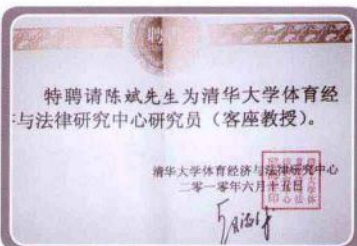 聘
特聘请陈斌先生为清华大学体育经
济与法律研究中心研究员（客座教授）。
清华大学体育经济与法律研究中心
二零一零年六月十五日